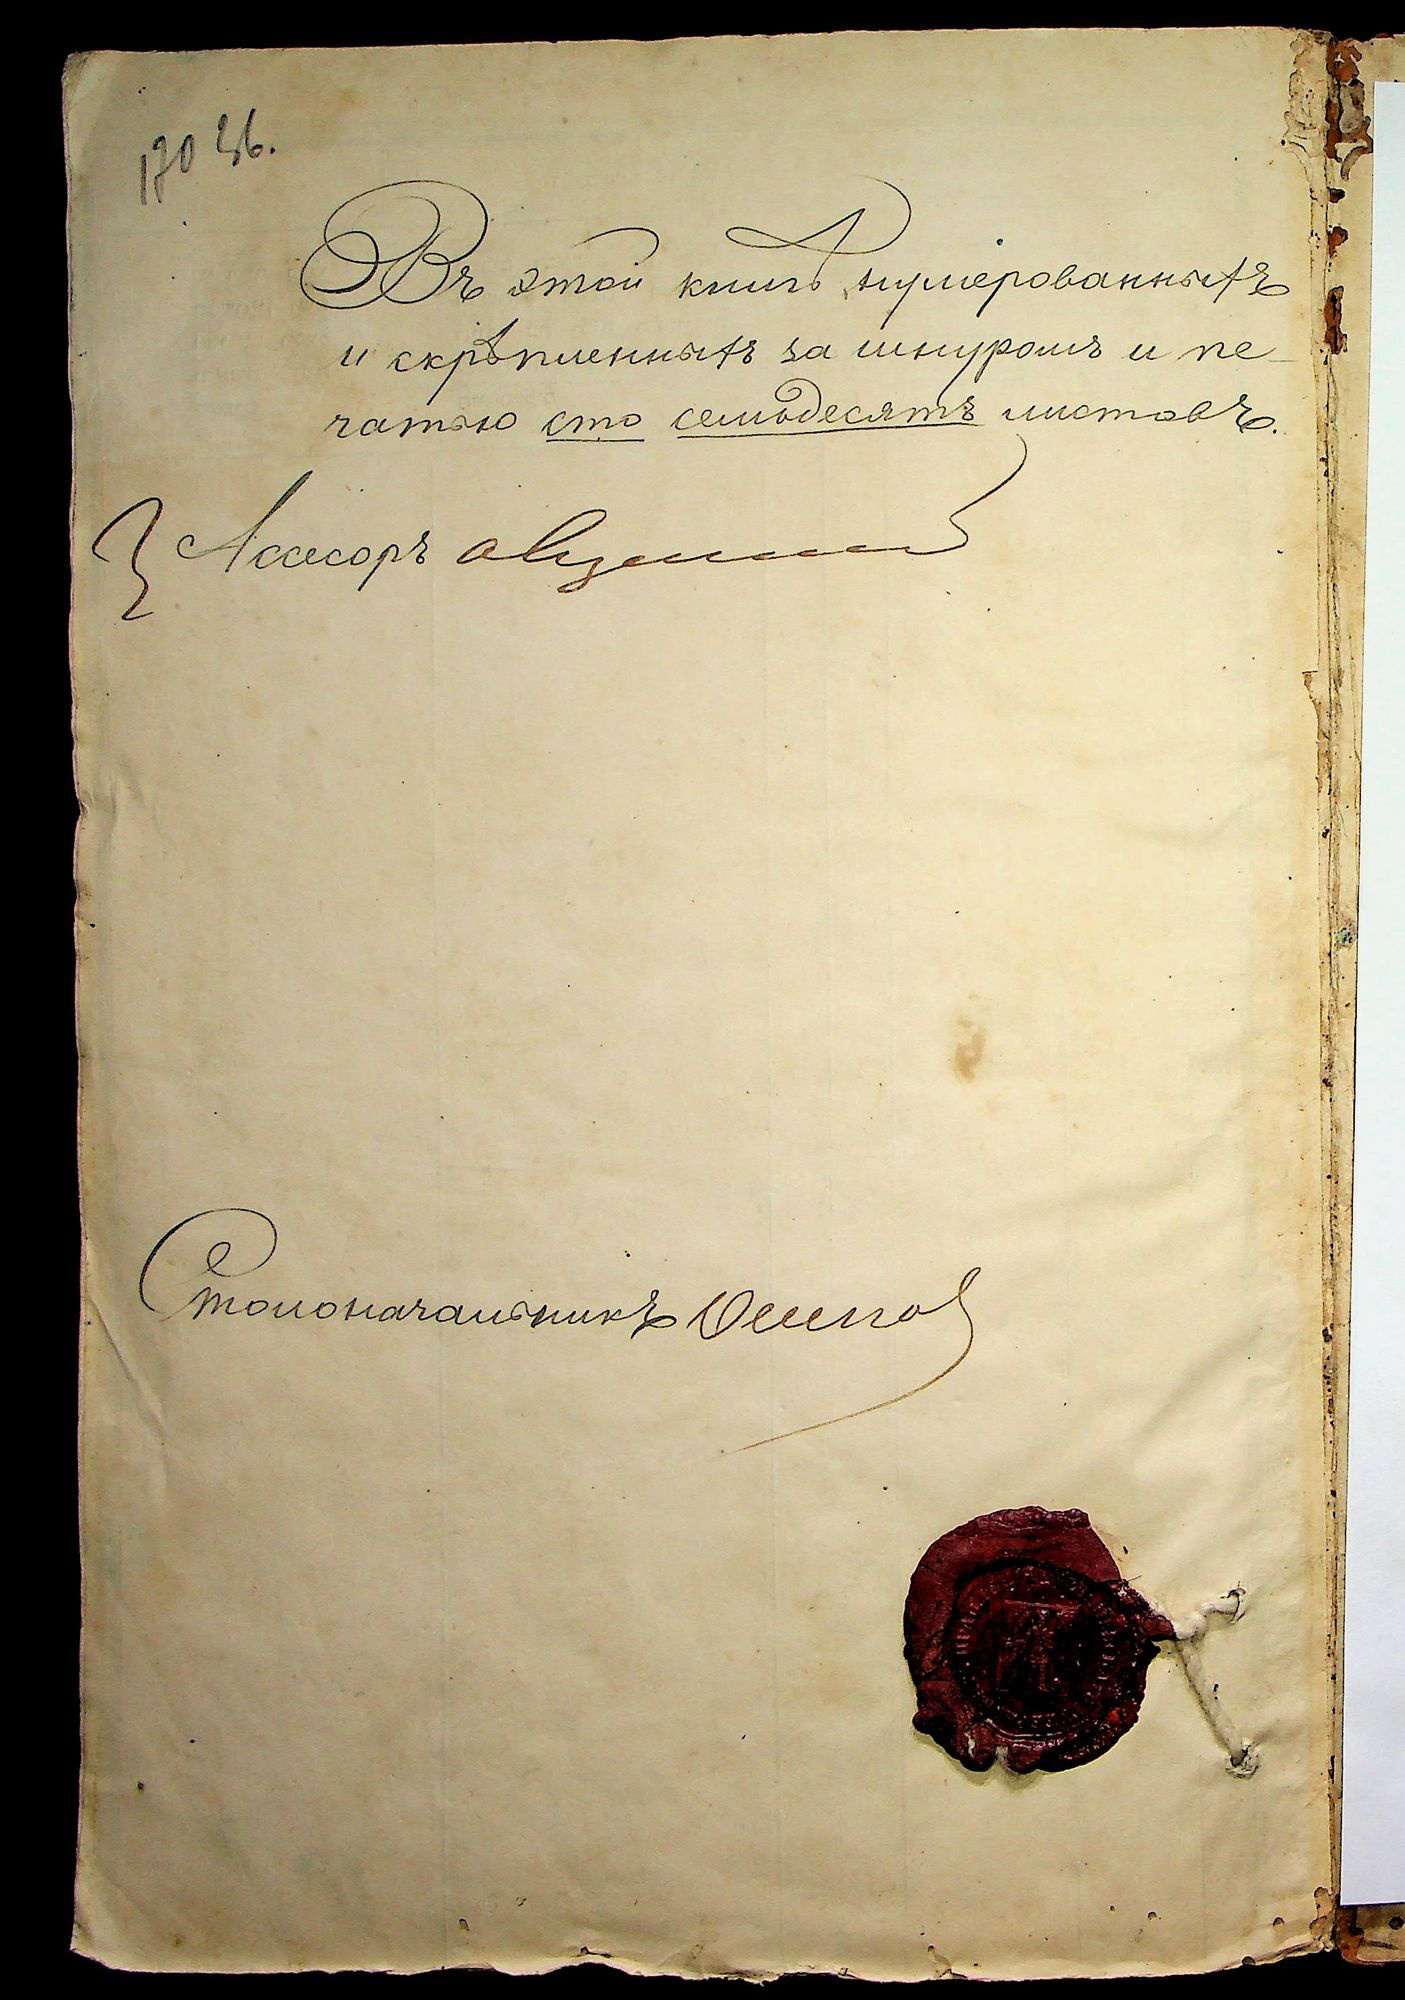 170
Въ этой книгѣ нумерованныхъ
и скрѣпленныхъ за шнуромъ и пе-
чатью сто семьдесятъ листовъ.
Асесоръ
Столоначальникъ Осипов